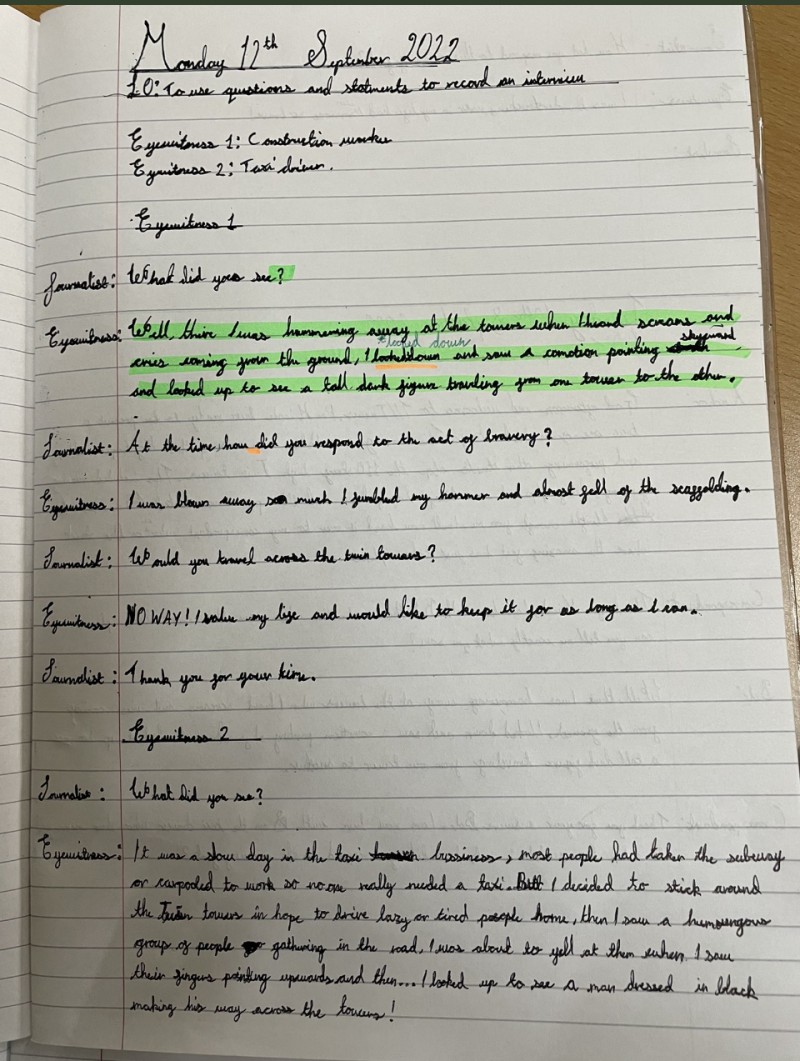 Monday 12th September 2022
LO: To use questions and statments to record an interview
Eyewitness 1: Construction worker
Eyewitness 2: Taxi driver.
Eyewitness 1
Journalist: What did you see?
Eyewitness: Well, there I was hammering away at the towers when I heard screams and
looked down skyward
cries coming from the ground, I lookeddown and saw a comotion pointing
and looked up to see a tall dark figure traveling from one tower to the other.
Journalist: At the time how did you respond to the act of bravery?
Eyewitness: I was blown away so much I fumbled my hammer and almost fell of the scaffolding.
Journalist: Would you travel across the twin towers?
Eyewitness: NO WAY! I value my life and would like to keep it for as long as I can.
Journalist: Thank you for your time.
Eyewitness 2
Journalist: What did you see?
Eyewitness: It was a slow day in the taxi bussiness, most people had taken the subway
or carpooled to work so no one really needed a taxi. But I decided to stick around
the Twin towers in hope to drive lazy or tired people home, then I saw a humoungous
group of people gathering in the road, I was about to yell at them when I saw
their fingers pointing upwards and then... I looked up to see a man dressed in black
making his way across the towers!